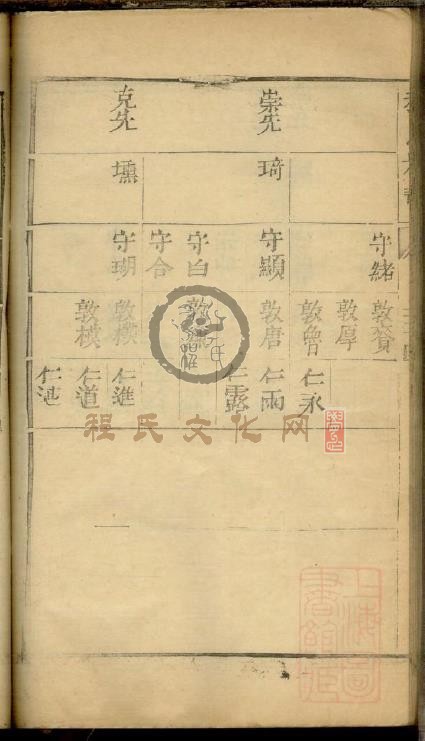 崇先
克先
琦
壎
守緒
守顯
守白
守合
守瑚
敦賚
敦厚
敦魯
敦唐
敦
敦樸
敦模
仁永
仁雨
仁露
仁進
仁道
仁港
程氏文化网
上海圖書館藏